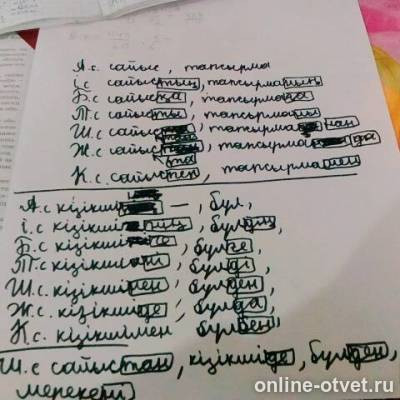 А.с сайыс, тапсырма
І.с сайыстың, тапсырманың
Б.с сайысқа, тапсырмаға
Т.с сайысты, тапсырманы
Ш.с сайыс тан, тапсырма нан
Ж.с сайыс та, тапсырма да
К.с сайыспен, тапсырмамен
А.с кізікші —, бұл,
І.с кізікшінің, бұлдің
Б.с кізікшіге, бұлге
Т.с кізікшіні, бұлді
Ш.с кізікшіден, бұлден
Ж.с кізікшіде, бұлде
К.с кізікшімен, бұлбен,
Ш.с сайыстан, кізікшіде, бұлден,
мерекені
online-otvet.ru